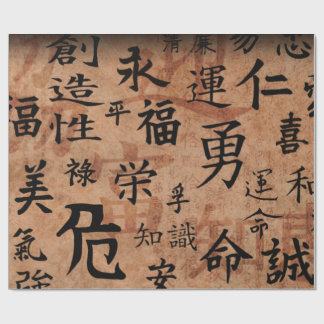 創造性
永福
平
清廉
運勇
易
仁
忠
福
美
氣強
祿
危
栄
知識
孚
安
命
運命
喜
和
誠